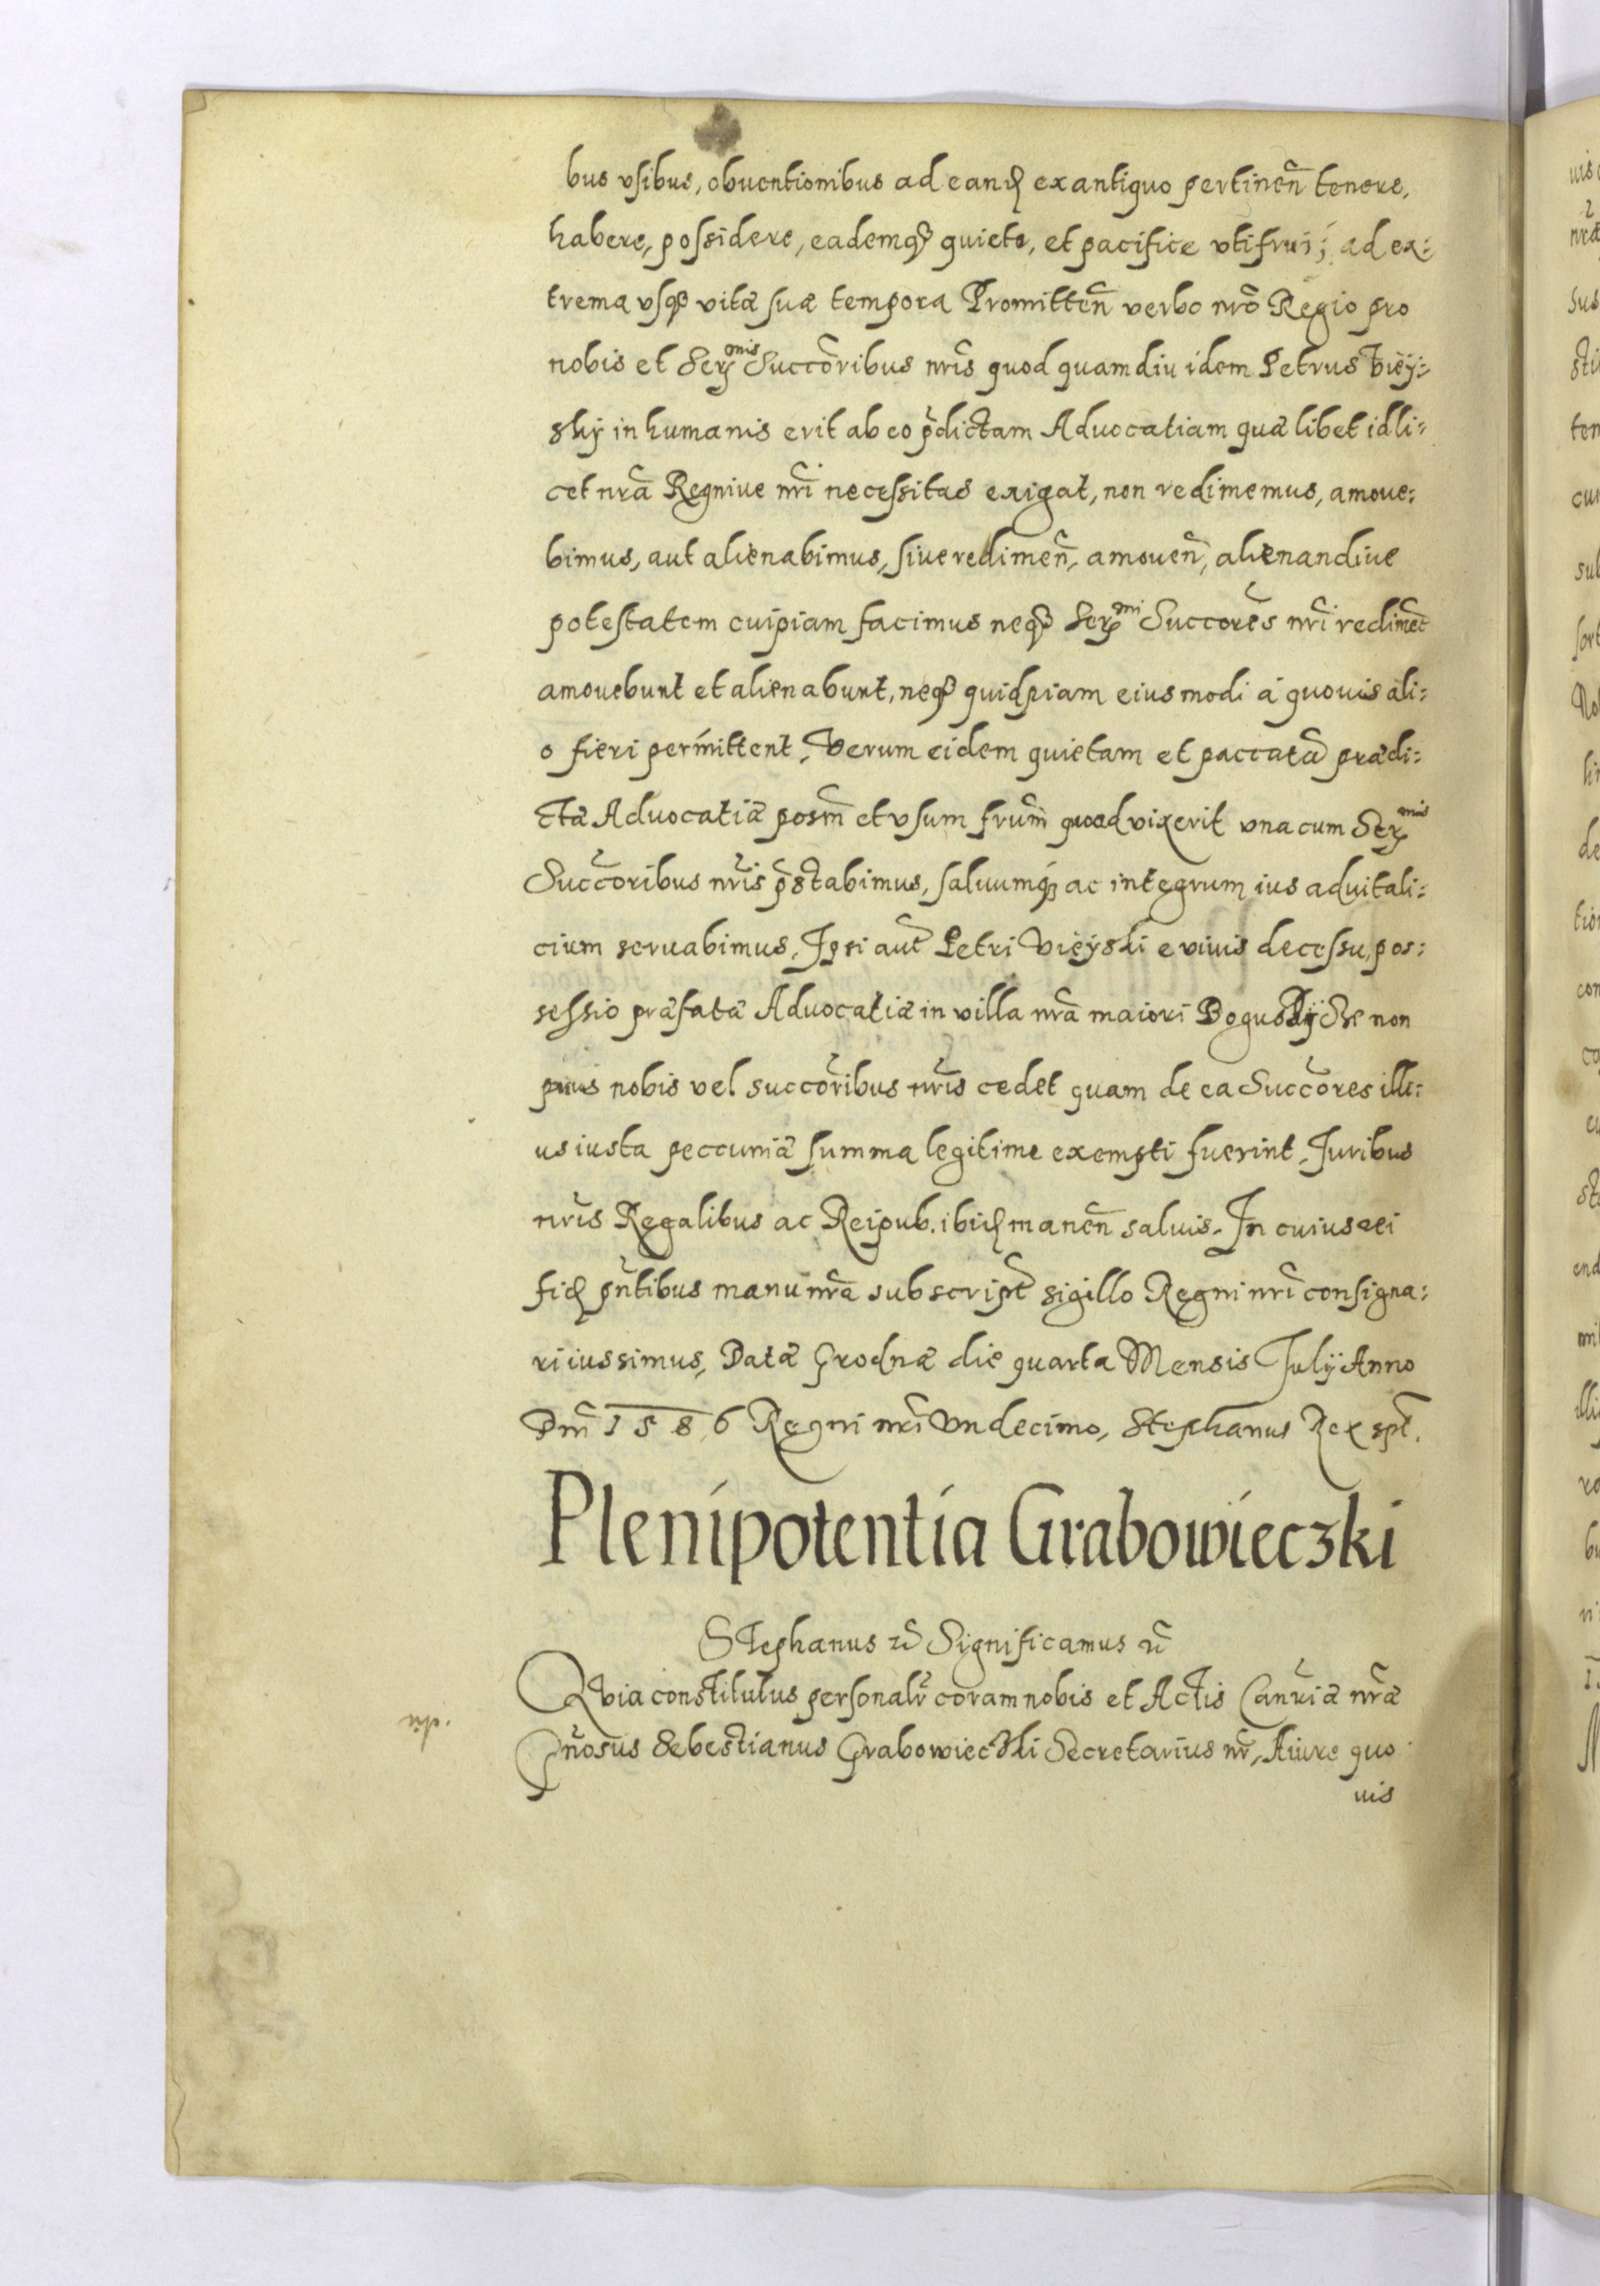 bus vsibus, obuentionibus ad eandē ex antiquo pertinen̄ tenere,
habere, possidere, eademq3 quiete, et pacifice vtifrui; ad ex:
trema vsq3 vitæ suæ tempora Promitten̄ verbo nr̃o Regio pro
nobis et Ser^mis Succ̃oribus nr̃is quod quam diu idem Petrus Viey:
sky in humanis erit ab eo p̃dictam Aduocatiam quælibet id li:
cet nr̃a Regniue nr̃i necessitas exigat, non redimemus, amoue:
bimus, aut alienabimus, siue redimen̄, amouen̄, alienandiue
potestatem cuipiam facimus neq3 Ser^mi Succores nr̃i rediment
amouebunt et alienabunt, neq3 quidpiam eiusmodi á quouis ali:
o fieri permittent, Verum eidem quietam et paccatã prædi:
ctæ Aduocatiæ posm̃ et vsum frum̃ quoad vixerit vna cum Ser^mis
Succ̃oribus nr̃is p̃stabimus, saluumq3 ac integrum ius aduitali:
cium seruabimus, Ipsi aut̃ Petri Vieyski e viuis decessu, pos:
sessio præfatæ Aduocatiæ in villa nr̃a maiori non
prius nobis vel succ̃oribus nr̃is cedet quam de ea Succ̃ores illi:
us iusta peccuniæ summa legitime exempti fuerint, Juribus
nr̃is Regalibus ac Reipub. ibid manen̄ saluis. In cuius rei
fid pñtibus manu nr̃a subscript̃ sigillo Regni nr̃i consigna:
ri iussimus, Datæ Grodnæ die quarta Mensis Julij Anno
Dm̃ 1586 Regni nr̃i Vndecimo, Stephanus Rex spt̃.
Plenipotentia Grabowieczki
Stephanus &c̃ Significamus &c̃
Qvia constitutus personalr̃ coram nobis et Actis Canr̃iæ nr̃æ
Gñosus Sebestianus Grabowieczki Secretarius nr̃, A iure quo
uis